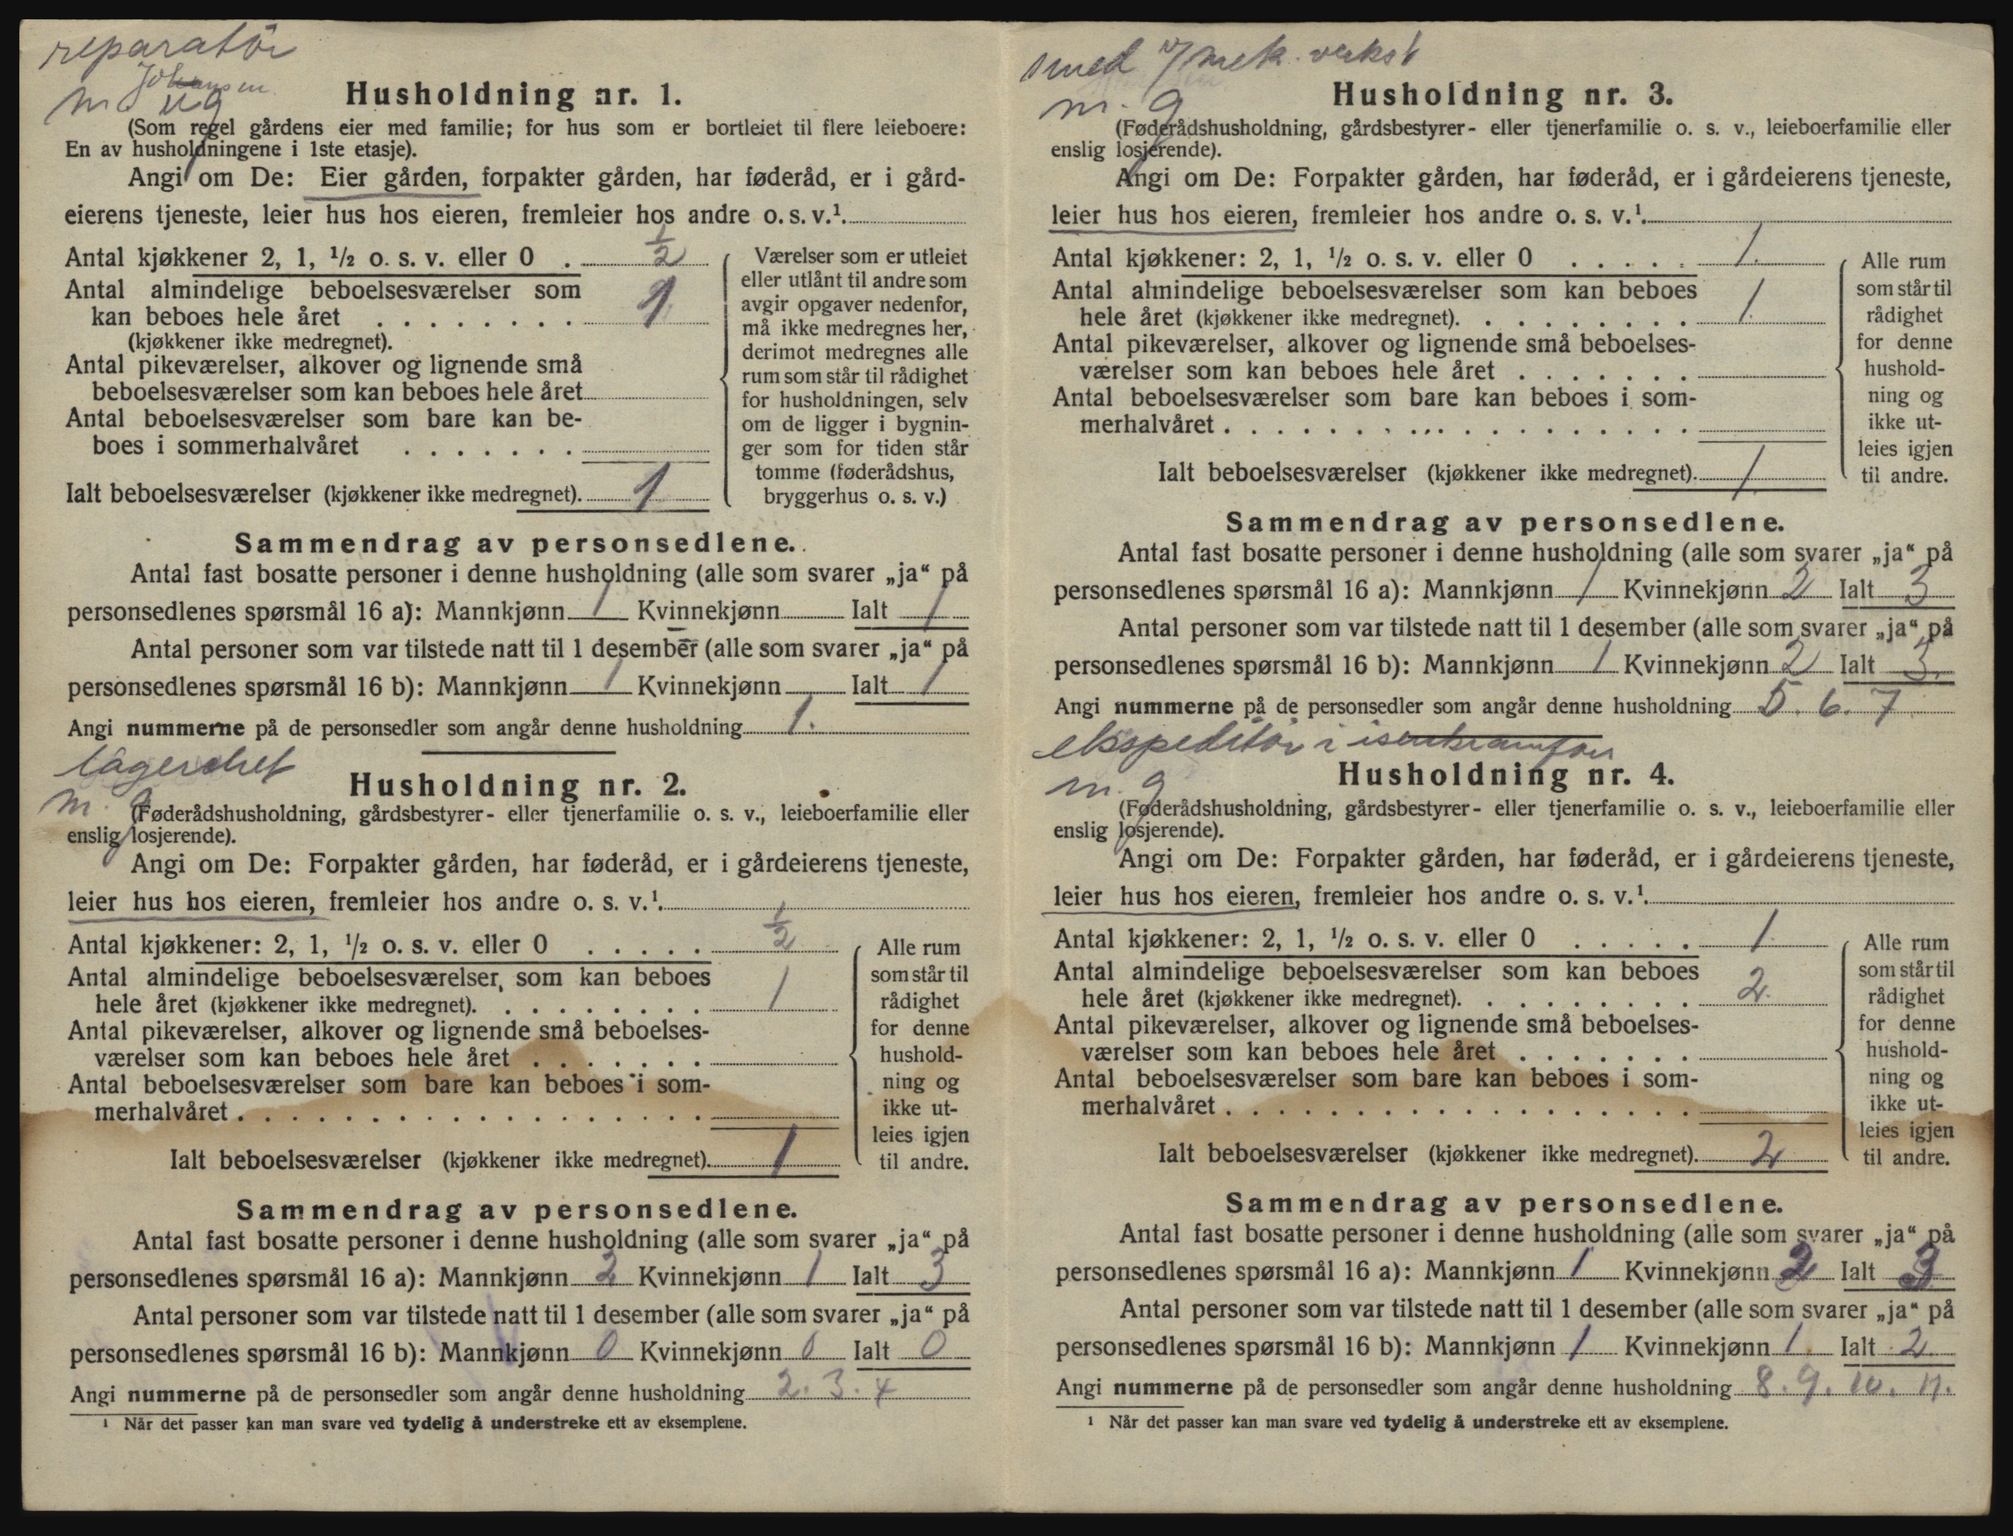 reparatør
Johansen
m. ug
Husholdning nr. 1.
(Som regel gårdens eier med familie; for hus som er bortleiet til flere leieboere:
En av husholdningene i 1ste etasje).
Angi om De: Eier gården, forpakter gården, har føderåd, er i gård-
eierens tjeneste, leier hus hos eieren, fremleier hos andre o. s. v.¹.
Antal kjøkkener 2, 1, ½ o. s. v. eller 0 . ½
Antal almindelige beboelsesværelser som
kan beboes hele året . . . . . . . . 1
(kjøkkener ikke medregnet).
Antal pikeværelser, alkover og lignende små
beboelsesværelser som kan beboes hele året
Antal beboelsesværelser som bare kan be-
boes i sommerhalvåret . . . . . . .
Ialt beboelsesværelser (kjøkkener ikke medregnet). 1
Værelser som er utleiet
eller utlånt til andre som
avgir opgaver nedenfor,
må ikke medregnes her,
derimot medregnes alle
rum som står til rådighet
for husholdningen, selv
om de ligger i bygnin-
ger som for tiden står
tomme (føderådshus,
bryggerhus o. s. v.)
Sammendrag av personsedlene.
Antal fast bosatte personer i denne husholdning (alle som svarer „ja“ på
personsedlenes spørsmål 16 a): Mannkjønn 1 Kvinnekjønn Ialt 1
Antal personer som var tilstede natt til 1 desember (alle som svarer „ja“ på
personsedlenes spørsmål 16 b): Mannkjønn 1 Kvinnekjønn Ialt 1
Angi nummerne på de personsedler som angår denne husholdning 1.
m. g
Husholdning nr. 2.
(Føderådshusholdning, gårdsbestyrer- eller tjenerfamilie o. s. v., leieboerfamilie eller
enslig losjerende).
Angi om De: Forpakter gården, har føderåd, er i gårdeierens tjeneste,
leier hus hos eieren, fremleier hos andre o. s. v.¹.
Antal kjøkkener: 2, 1, ½ o. s. v. eller 0 . . . . . ½
Antal almindelige beboelsesværelser som kan beboes
hele året (kjøkkener ikke medregnet). . . . . . . . . 1
Antal pikeværelser, alkover og lignende små beboelses-
værelser som kan beboes hele året . . . . . . .
Antal beboelsesværelser som bare kan beboes i som-
merhalvåret . . . . . . . . . . . . . . . . . .
Ialt beboelsesværelser (kjøkkener ikke medregnet). 1
Alle rum
som står til
rådighet
for denne
hushold-
ning og
ikke ut-
leies igjen
til andre.
Sammendrag av personsedlene.
Antal fast bosatte personer i denne husholdning (alle som svarer „ja“ på
personsedlenes spørsmål 16 a): Mannkjønn 2 Kvinnekjønn 1 Ialt 3
Antal personer som var tilstede natt til 1 desember (alle som svarer „ja“ på
personsedlenes spørsmål 16 b): Mannkjønn 0 Kvinnekjønn 0 Ialt 0
Angi nummerne på de personsedler som angår denne husholdning 2. 3. 4
¹ Når det passer kan man svare ved tydelig å understreke ett av eksemplene.
smed v/ mek. verkst
m. g
Husholdning nr. 3.
(Føderådshusholdning, gårdsbestyrer- eller tjenerfamilie o. s. v., leieboerfamilie eller
enslig losjerende).
Angi om De: Forpakter gården, har føderåd, er i gårdeierens tjeneste,
leier hus hos eieren, fremleier hos andre o. s. v.¹.
Antal kjøkkener: 2, 1, ½ o. s. v. eller 0 . . . . . 1.
Antal almindelige beboelsesværelser som kan beboes
hele året (kjøkkener ikke medregnet). . . . . . . . . 1.
Antal pikeværelser, alkover og lignende små beboelses-
værelser som kan beboes hele året . . . . . . .
Antal beboelsesværelser som bare kan beboes i som-
merhalvåret . . . . . . . . . . . . . . . . . .
Ialt beboelsesværelser (kjøkkener ikke medregnet). 1.
Alle rum
som står til
rådighet
for denne
hushold-
ning og
ikke ut-
leies igjen
til andre.
Sammendrag av personsedlene.
Antal fast bosatte personer i denne husholdning (alle som svarer „ja“ på
personsedlenes spørsmål 16 a): Mannkjønn 1 Kvinnekjønn 2 Ialt 3
Antal personer som var tilstede natt til 1 desember (alle som svarer „ja“ på
personsedlenes spørsmål 16 b): Mannkjønn 1 Kvinnekjønn 2 Ialt 3.
Angi nummerne på de personsedler som angår denne husholdning 5. 6. 7.
ekspeditør i isenkramforr
m. g
Husholdning nr. 4.
(Føderådshusholdning, gårdsbestyrer- eller tjenerfamilie o. s. v., leieboerfamilie eller
enslig losjerende).
Angi om De: Forpakter gården, har føderåd, er i gårdeierens tjeneste,
leier hus hos eieren, fremleier hos andre o. s. v.¹.
Antal kjøkkener: 2, 1, ½ o. s. v. eller 0 . . . . . 1.
Antal almindelige beboelsesværelser som kan beboes
hele året (kjøkkener ikke medregnet). . . . . . . . . 2.
Antal pikeværelser, alkover og lignende små beboelses-
værelser som kan beboes hele året . . . . . . .
Antal beboelsesværelser som bare kan beboes i som-
merhalvåret . . . . . . . . . . . . . . . . . .
Ialt beboelsesværelser (kjøkkener ikke medregnet). 2
Alle rum
som står til
rådighet
for denne
hushold-
ning og
ikke ut-
leies igjen
til andre.
Sammendrag av personsedlene.
Antal fast bosatte personer i denne husholdning (alle som svarer „ja“ på
personsedlenes spørsmål 16 a): Mannkjønn 1 Kvinnekjønn 2 Ialt 3
Antal personer som var tilstede natt til 1 desember (alle som svarer „ja“ på
personsedlenes spørsmål 16 b): Mannkjønn 1 Kvinnekjønn 1. Ialt 2.
Angi nummerne på de personsedler som angår denne husholdning 8. 9. 10. 11.
¹ Når det passer kan man svare ved tydelig å understreke ett av eksemplene.